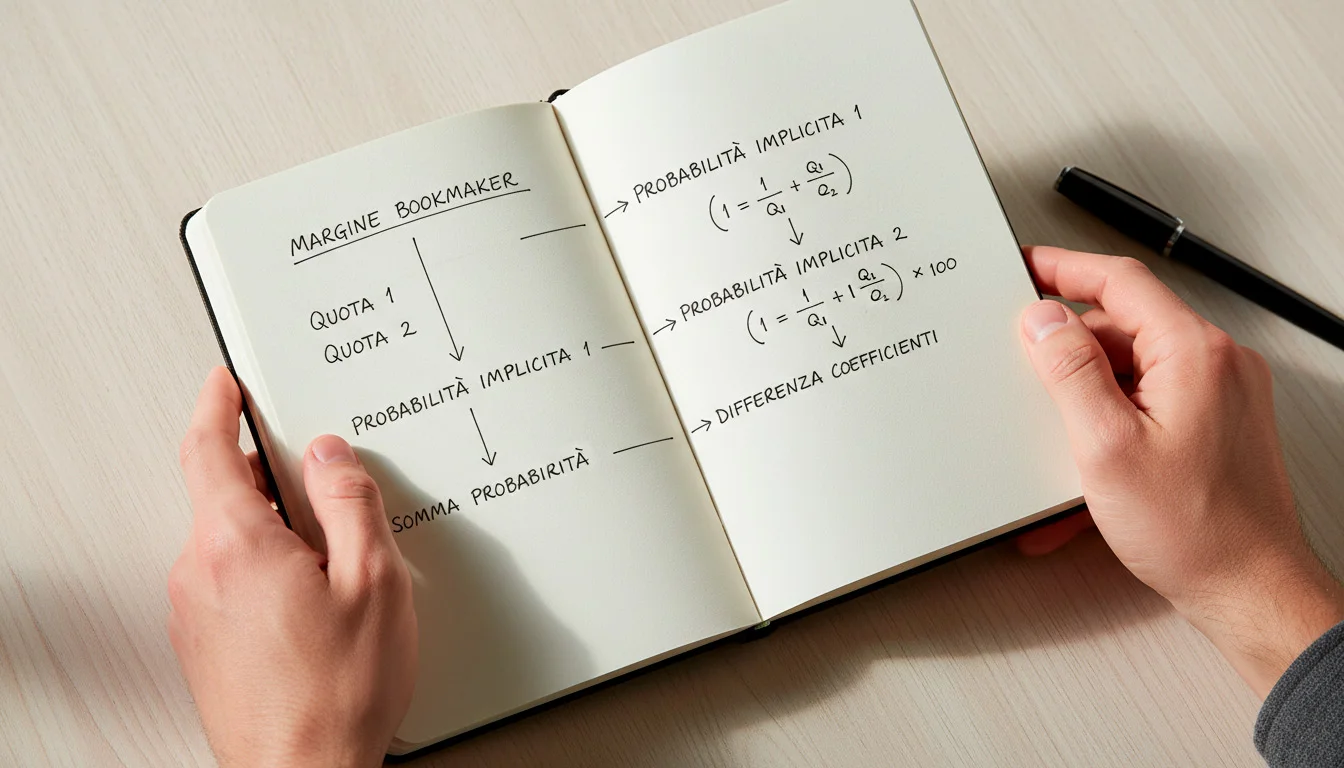 MARGINE BOOKMAKER
QUOTA 1
QUOTA 2
PROBABILITÀ IMPLICITA 1
SOMMA PROBABIRITÀ
→ PROBABILITÀ IMPLICITA 1
(1 = 1/Q1 + Q1/Q2)
→ PROBABILITÀ IMPLICITA 2
(1 = 1/Q1 + 1 Q1/Q2) × 100
→ DIFFERENZA COEFFICIENTI